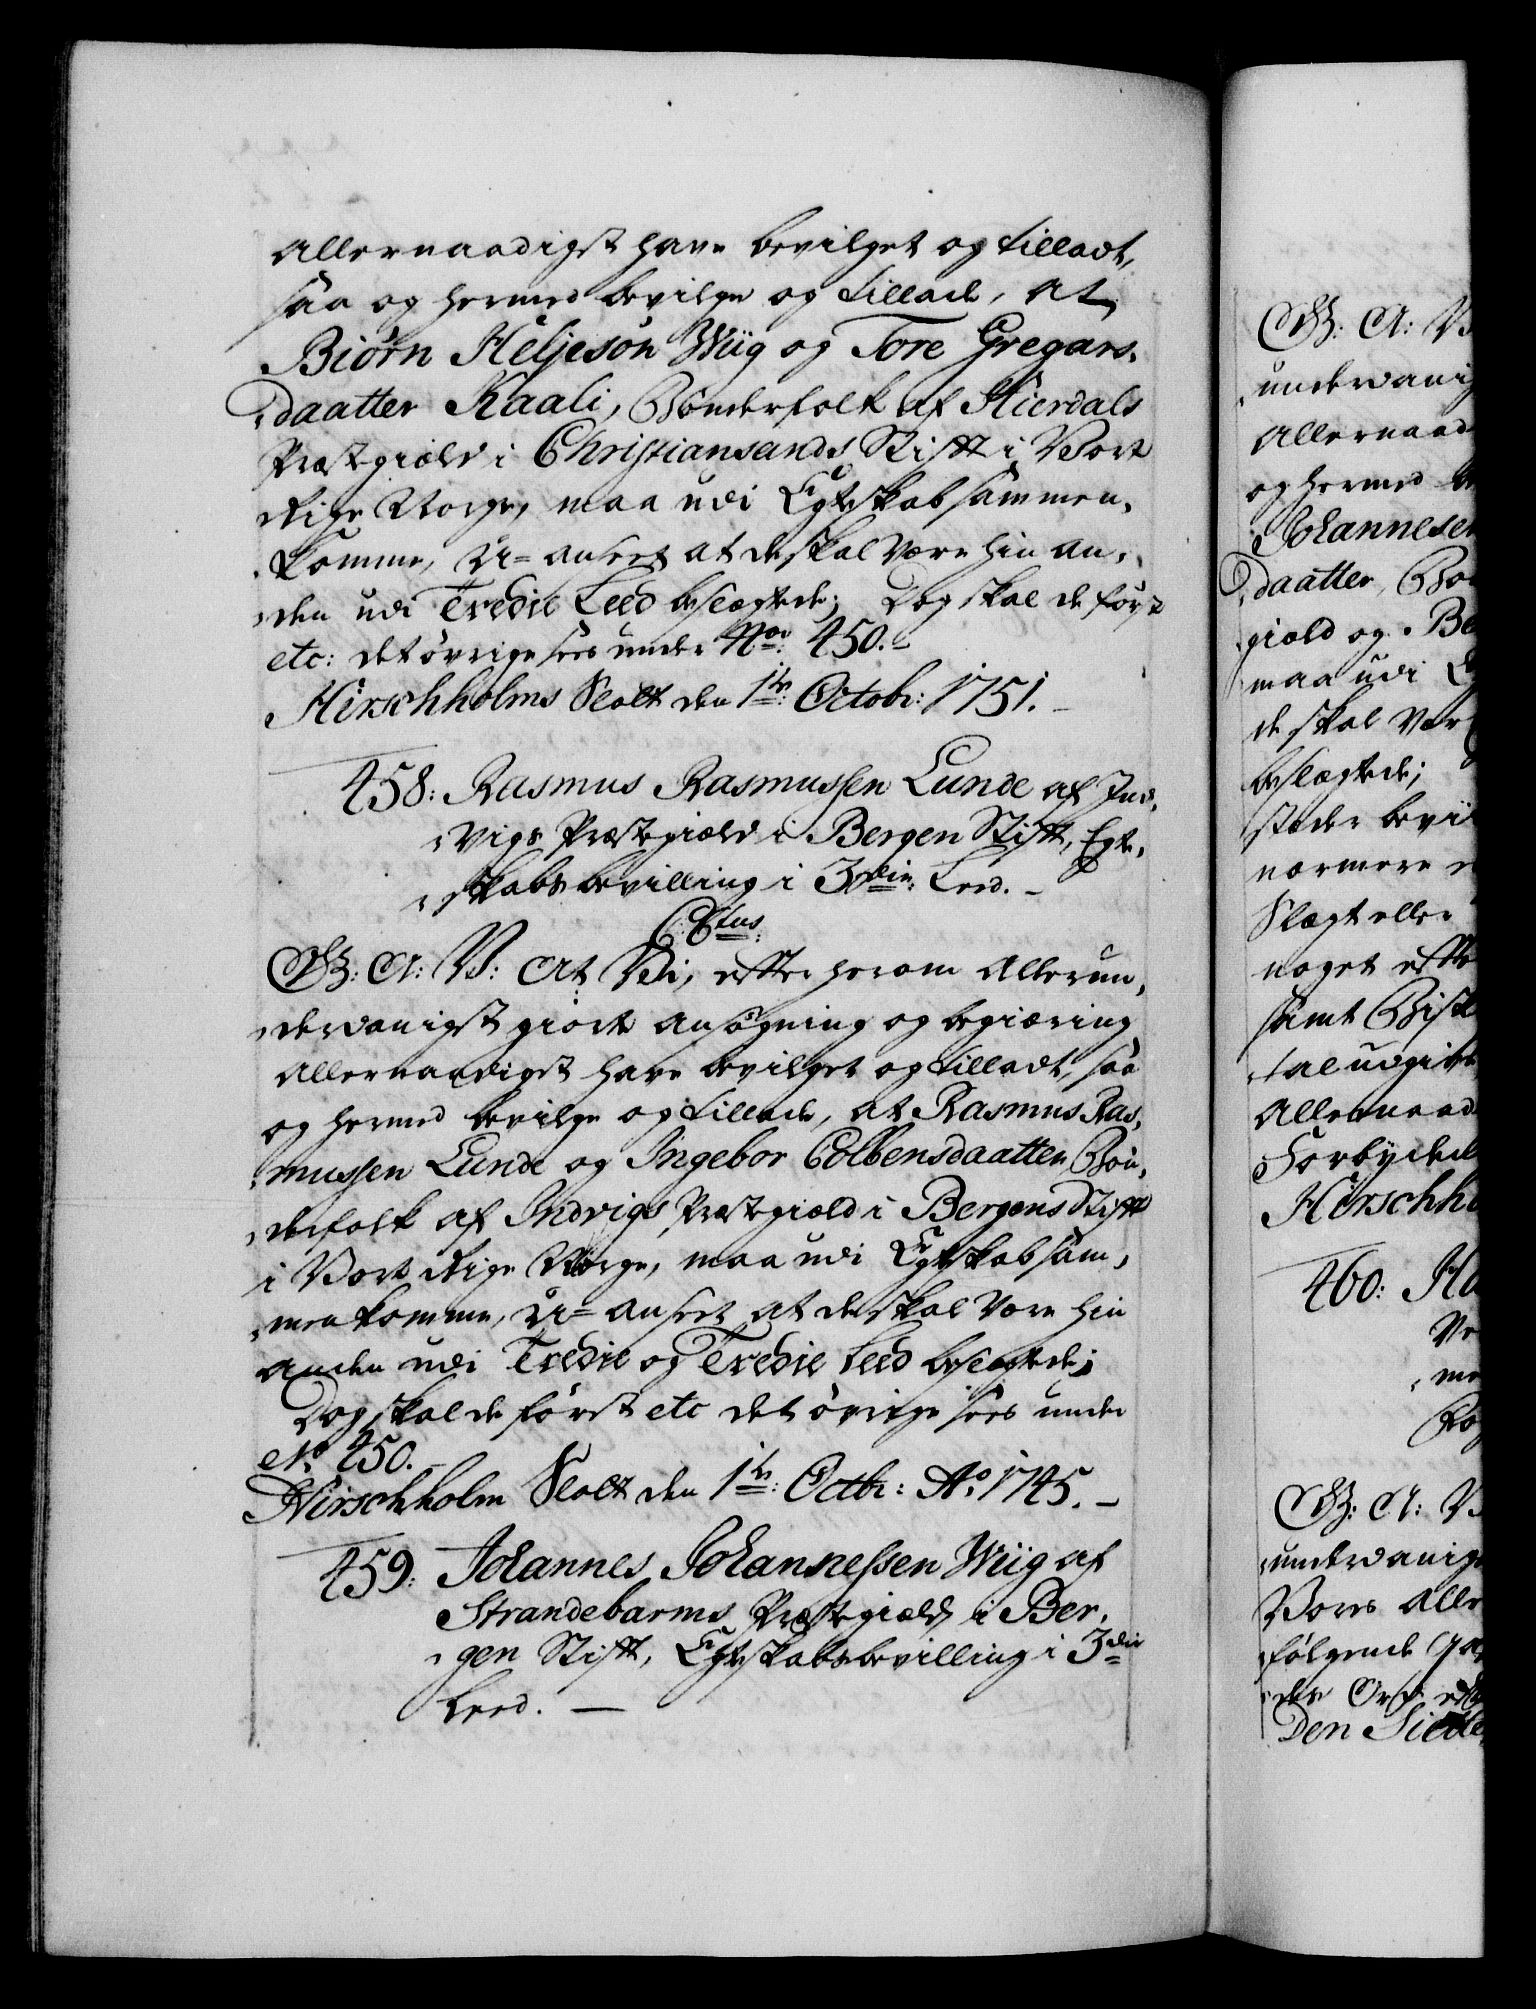 allernaadigst have bevilget og tilladt,
saa og hermed bevilge og tillade, at
Biørn Heljesøn Wiig og Tore Gregars-
daatter Kaali, Bønderfolk af Hierdals
Præstegield i Christiansands Stift i Vort
Rige Norge, maa udi Egteskab sammen-
komme, U-anseet at de skal være hin an-
den udi Tredie Leed beslægtede; Dog skal de først
etc: det øvrige sees under No: 450.
Hirschholms Slott den 1te: Octobr: 1751.
458: Rasmus Rasmussen Lunde af Ind-
vigs Præstegield i Bergen Stift, Egte-
skabs bevilling i 3die: Leed.
G: A: V: At Vi, efter herom allerun-
dervanigst giorte ansøgning og begiæring
allernaadigst have bevilget og tilladt, saa
og hermed bevilge og tillade, at Rasmus Ras-
mussen Lunde og Ingebor Colbensdaatter, Bøn-
derfolk af Indvigs Præstegield i Bergens Stift
i Vort Rige Norge, maa udi Egteskab sam-
men komme, U-anseet at de skal være hin
anden udi Tredie og Tredie Leed beslægtede;
Dog skal de først etc det øvrige sees under
No 450.
Hirschholm Slott den 1te: Octbr: Ao. 1745.
459: Johannes Johannessen Wiig af
Strandebarms Præstegield i Ber-
gen Stift, Egteskabsbevilling i 3die
Leed.
G: A: V
undervanig
Allernaad
og hermed
Johannesen
daatter, Bøn
gield og Be
maa udi E
de skal vær
beslægtede;
steder bevii
nærmere
Slægt eller
noget efte
samt Bisk
tal udgive
Allernaad
Forbydend
Hirschho
460: Ha
G: A: V
undervanig
Vores Alle
følgende
des Ord
Den Siette